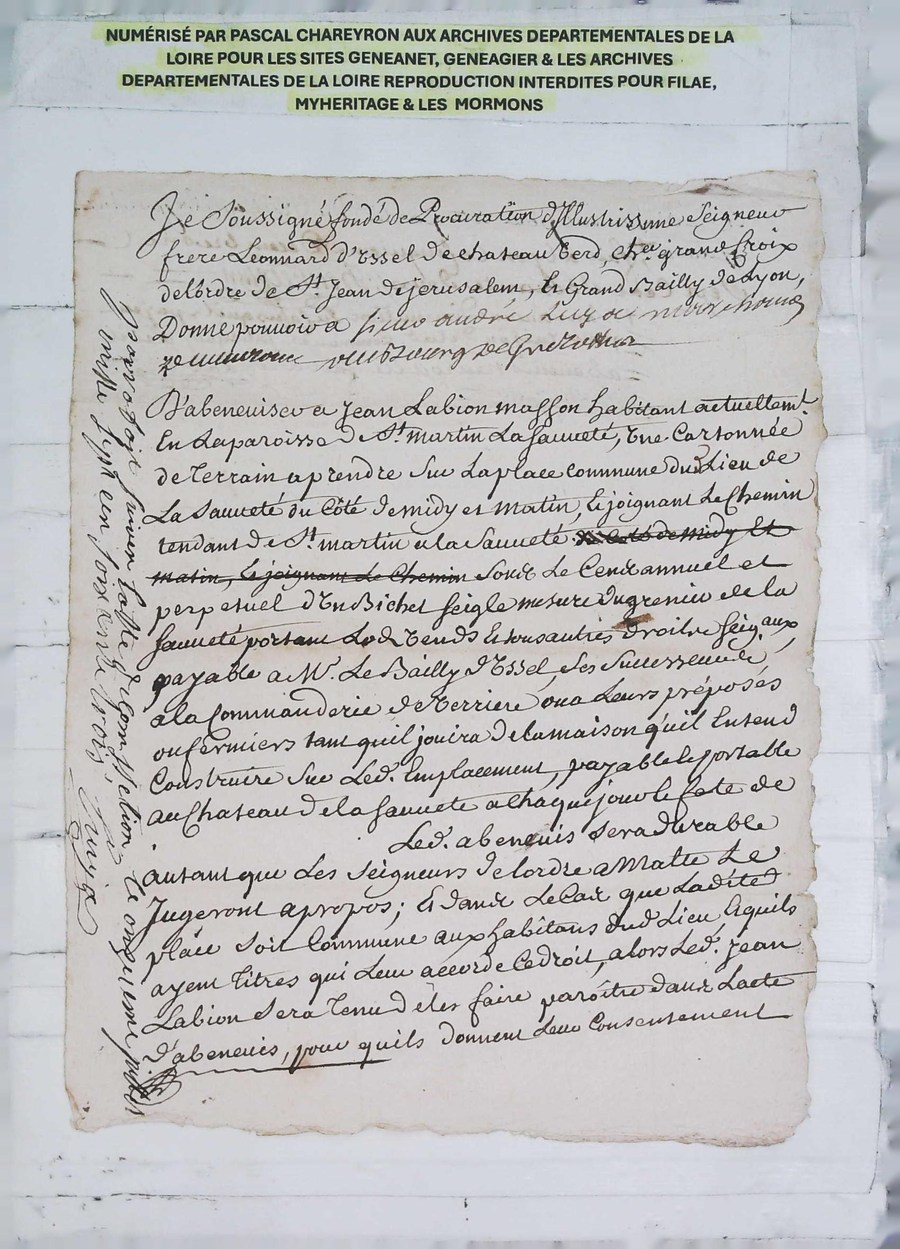 NUMÉRISÉ PAR PASCAL CHAREYRON AUX ARCHIVES DEPARTEMENTALES DE LA
LOIRE POUR LES SITES GENEANET, GENEAGIER & LES ARCHIVES
DEPARTEMENTALES DE LA LOIRE REPRODUCTION INTERDITES POUR FILAE,
MYHERITAGE & LES MORMONS
Je Soussigné fondé de Procuration d'Illustrissime Seigneur
frere Leonnard d'Ussel de chateau Verd, cher. grand Croix
de l'ordre de St. Jean de jerusalem, & Grand Bailly de Lyon,
Donne pouvoir a sieur andré
au Bourg de
D'abeneviser a Jean Labion masson habitant actuellemt.
En La paroisse de St. martin La Sauveté, Une Cartonnée
de Terrain a prendre sur La place Commune dud. Lieu de
La Sauveté du Côté de midy et matin, & joignant Le Chemin
tendant de St. martin a la Sauveté du Coté de midy Et
matin, & joignant Le Chemin sous Le Cens annuel et
perpetuel d'Un Bichet seigle mesure du grenier de la
Sauveté portant Lods Vends & tous autres droits seig.aux
payable a Mr. Le Bailly d'Ussel, Ses Successeurs
a la Commanderie de Verriere ou a Leurs préposés
ou fermiers tant qu'il jouira de la maison qu'il Entend
Construire sur Led. Emplacement, payable & portable
au Chateau de la Sauveté a Chaque jour & fete de
Led. abenevis sera durable
autant que Les seigneurs de l'ordre a Malte Le
Jugeront apropos; Et dans Le Cas que Ladite
place soit Commune aux habitans dud. Lieu, & quils
ayent Titres qui Leur accorde Ce droit, alors Led. Jean
Labion sera Tenu de les faire paroître dans L'acte
d'abenevis, pour quils donnent Leur Consentement
pour a fait suivre Le onzieme juillet
mille sept cen soixante trois